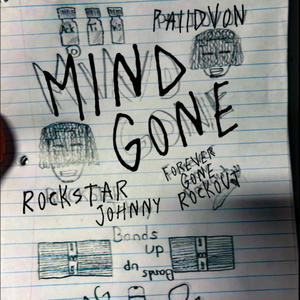 PAIIDVON
MIND
GONE
ROCKSTAR
JOHNNY
FOREVER
GONE
ROCKOUT
Bands
up
Bands
up